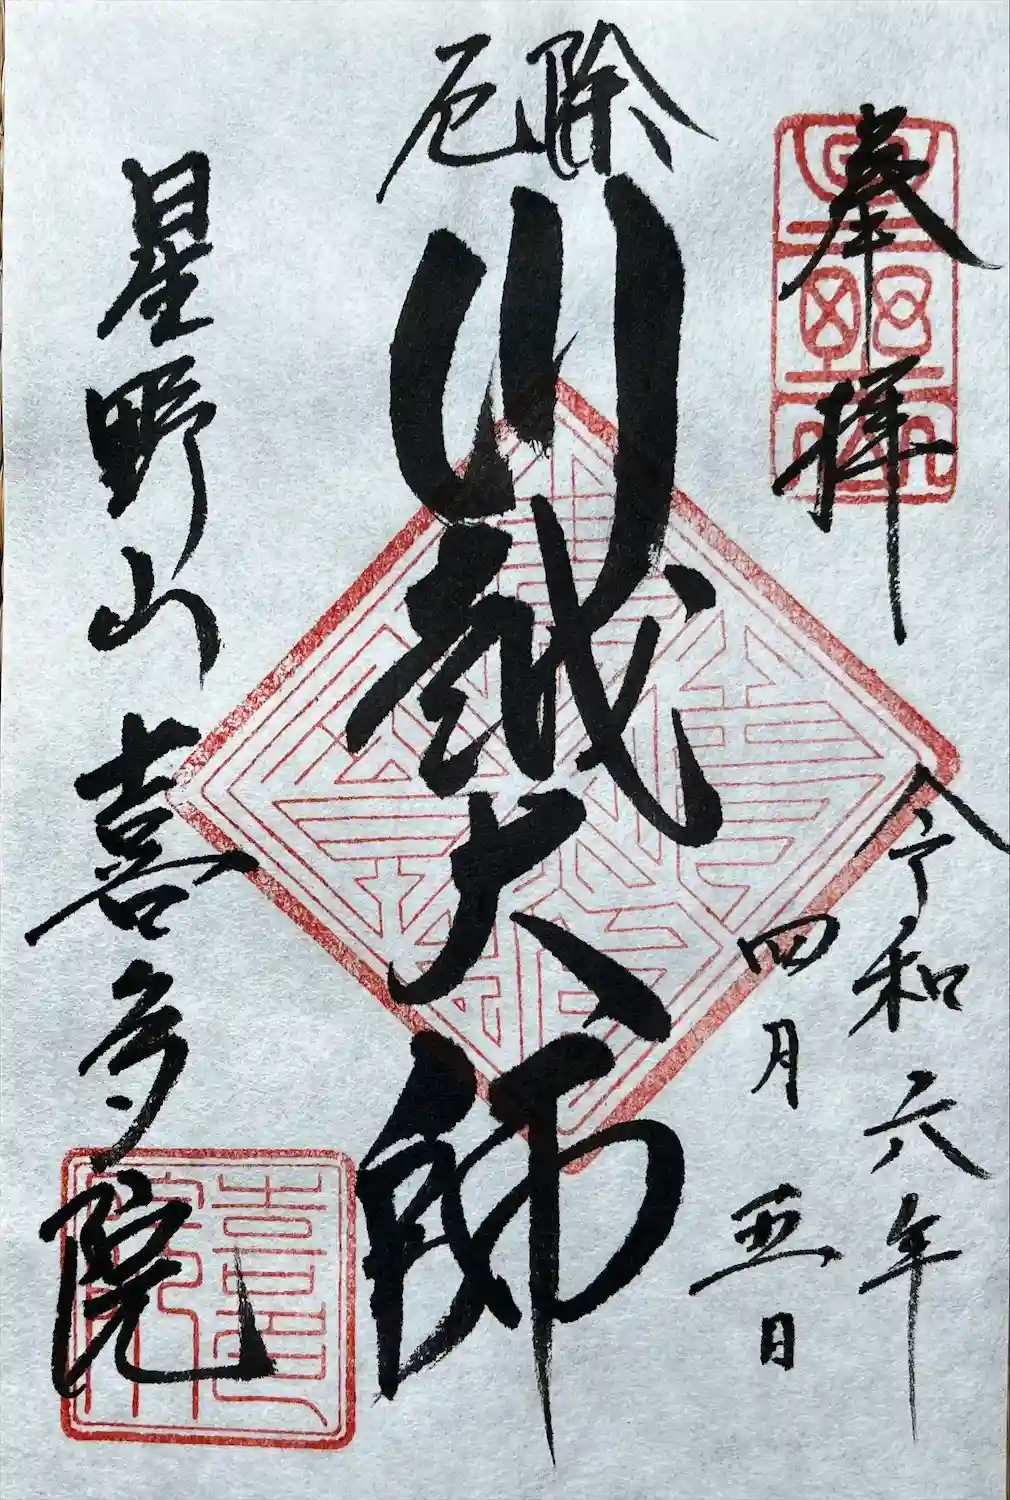 奉拝
令和六年
四月五日
厄除
川越大師
星野山喜多院
喜多院